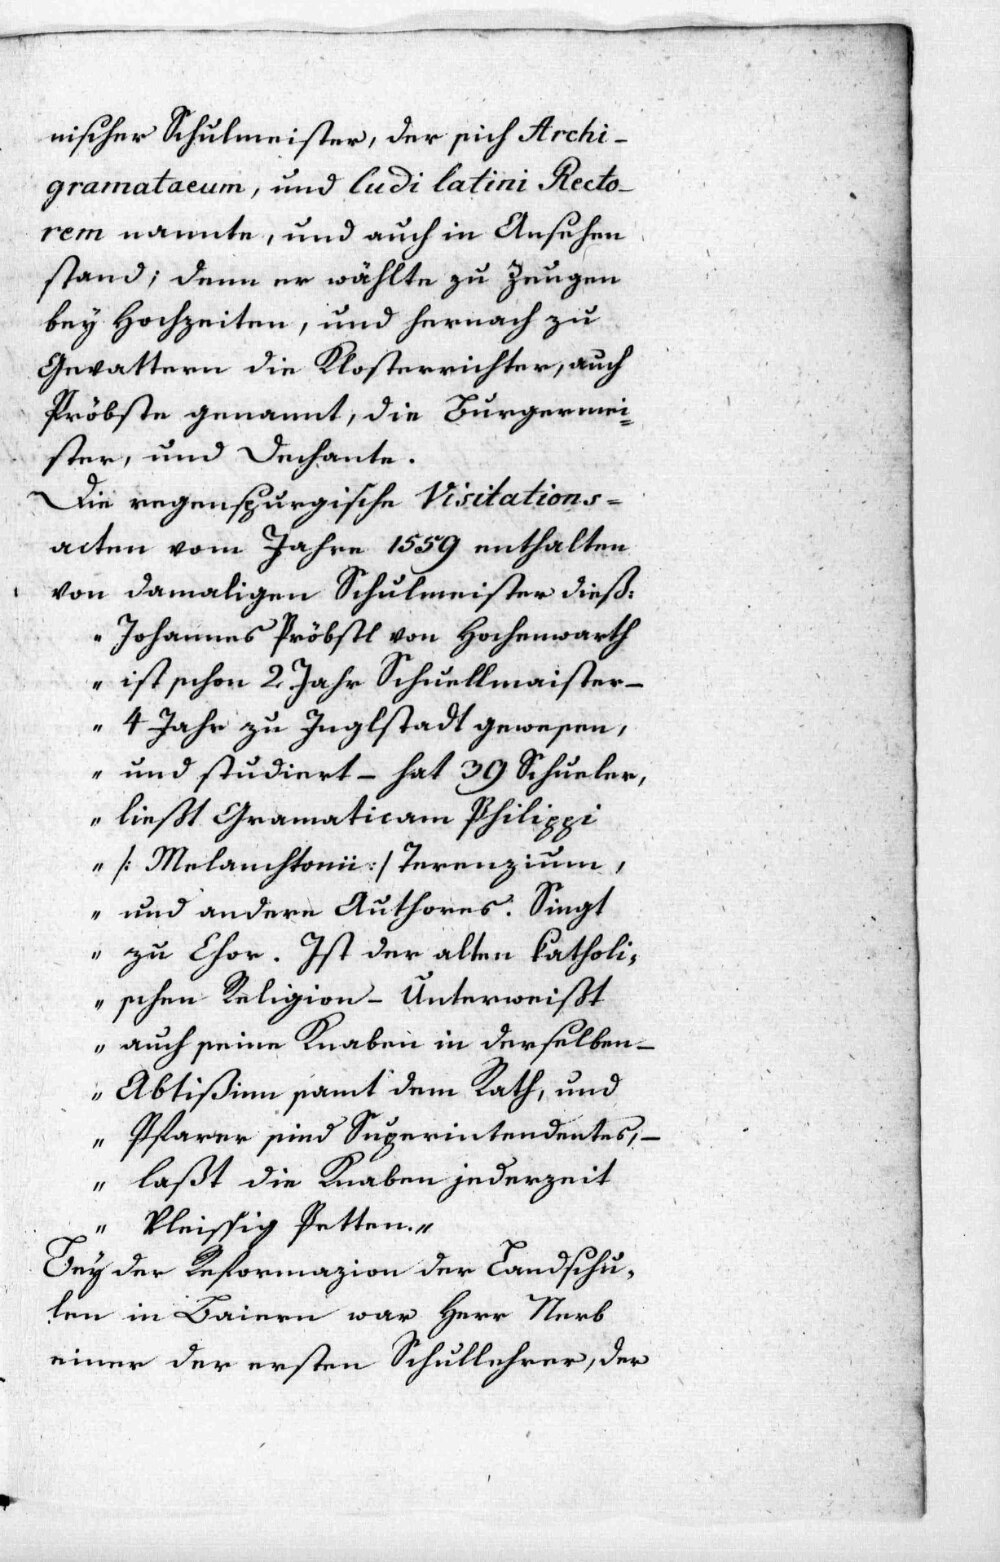 nischer Schulmeister, der sich Archi-
gramataeum, und ludi latini Recto-
rem nannte, und auch in Ansehen
stand; denn er wählte zu Zeugen
bey Hochzeiten, und hernach zu
Gevattern die Klosterrichter, auch
Pröbste genannt, die Burgermei=
ster, und Dechante.
Die regenspurgische Visitations=
acten vom Jahre 1559 enthalten
von damaligen Schulmeister dieß:
" Johannes Pröbstl von Hochenwarth
" ist schon 2 Jahr Schuellmaister-
" 4 Jahr zu Inglstadt gewesen,
" und studiert - hat 39 Schueler,
" ließt Gramaticam Philippi
" /: Melanchtonii :/ Terenzium,
" und andere Authores. Singt
" zu Chor. Ist der alten katholi=
" schen Religion - Unterweißt
" auch seine Knaben in derselben -
" Abtißinn samt dem Rath, und
" Pfarer sind Superintendentes, -
" laßt die Knaben jederzeit
" vleissig Petten."
Bey der Reformazion der Landschu=
len in Baiern war Herr Nerb
einer der ersten Schullehrer, der